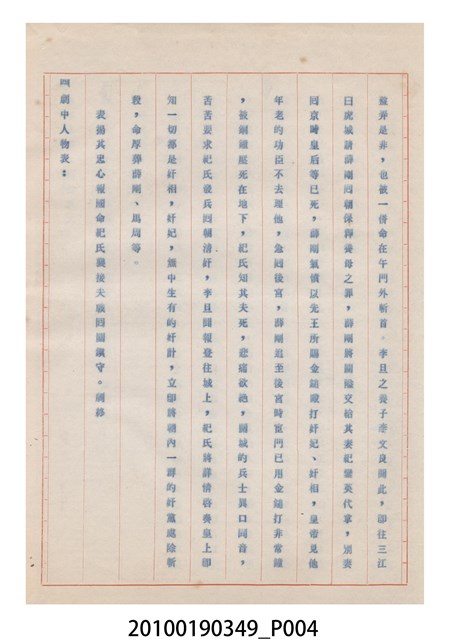 撥弄是非，也被一併命在午門外斬首。李旦之養子李文良聞此，即往三江
日虎城請薛剛回朝保釋養母之罪，薛剛將關隘交給其妻祀鸞英代拿，別妻
回京時皇后等已死，薛剛氣憤以先王所賜金鎚鐵打奸妃、奸相，皇帝見他
年老的功臣不去理他，急回後宮，薛剛追至後宮時宮門已用金鎚打非常鐘
，被銅鐵壓死在地下，祀氏知其夫死，悲痛欲絕，關城的兵士異口同音，
苦苦要求祀氏發兵回朝清奸，李旦聞報登住城上，祀氏將詳情啓奏皇上即
知一切都是奸相，奸妃，無中生有的奸計，立即將朝內一群的奸黨處除斬
殺，命厚葬薛剛、馬周等。
表揚其忠心報國命祀氏襲接夫職回關鎮守。劇終
四劇中人物表：
20100190349_P004